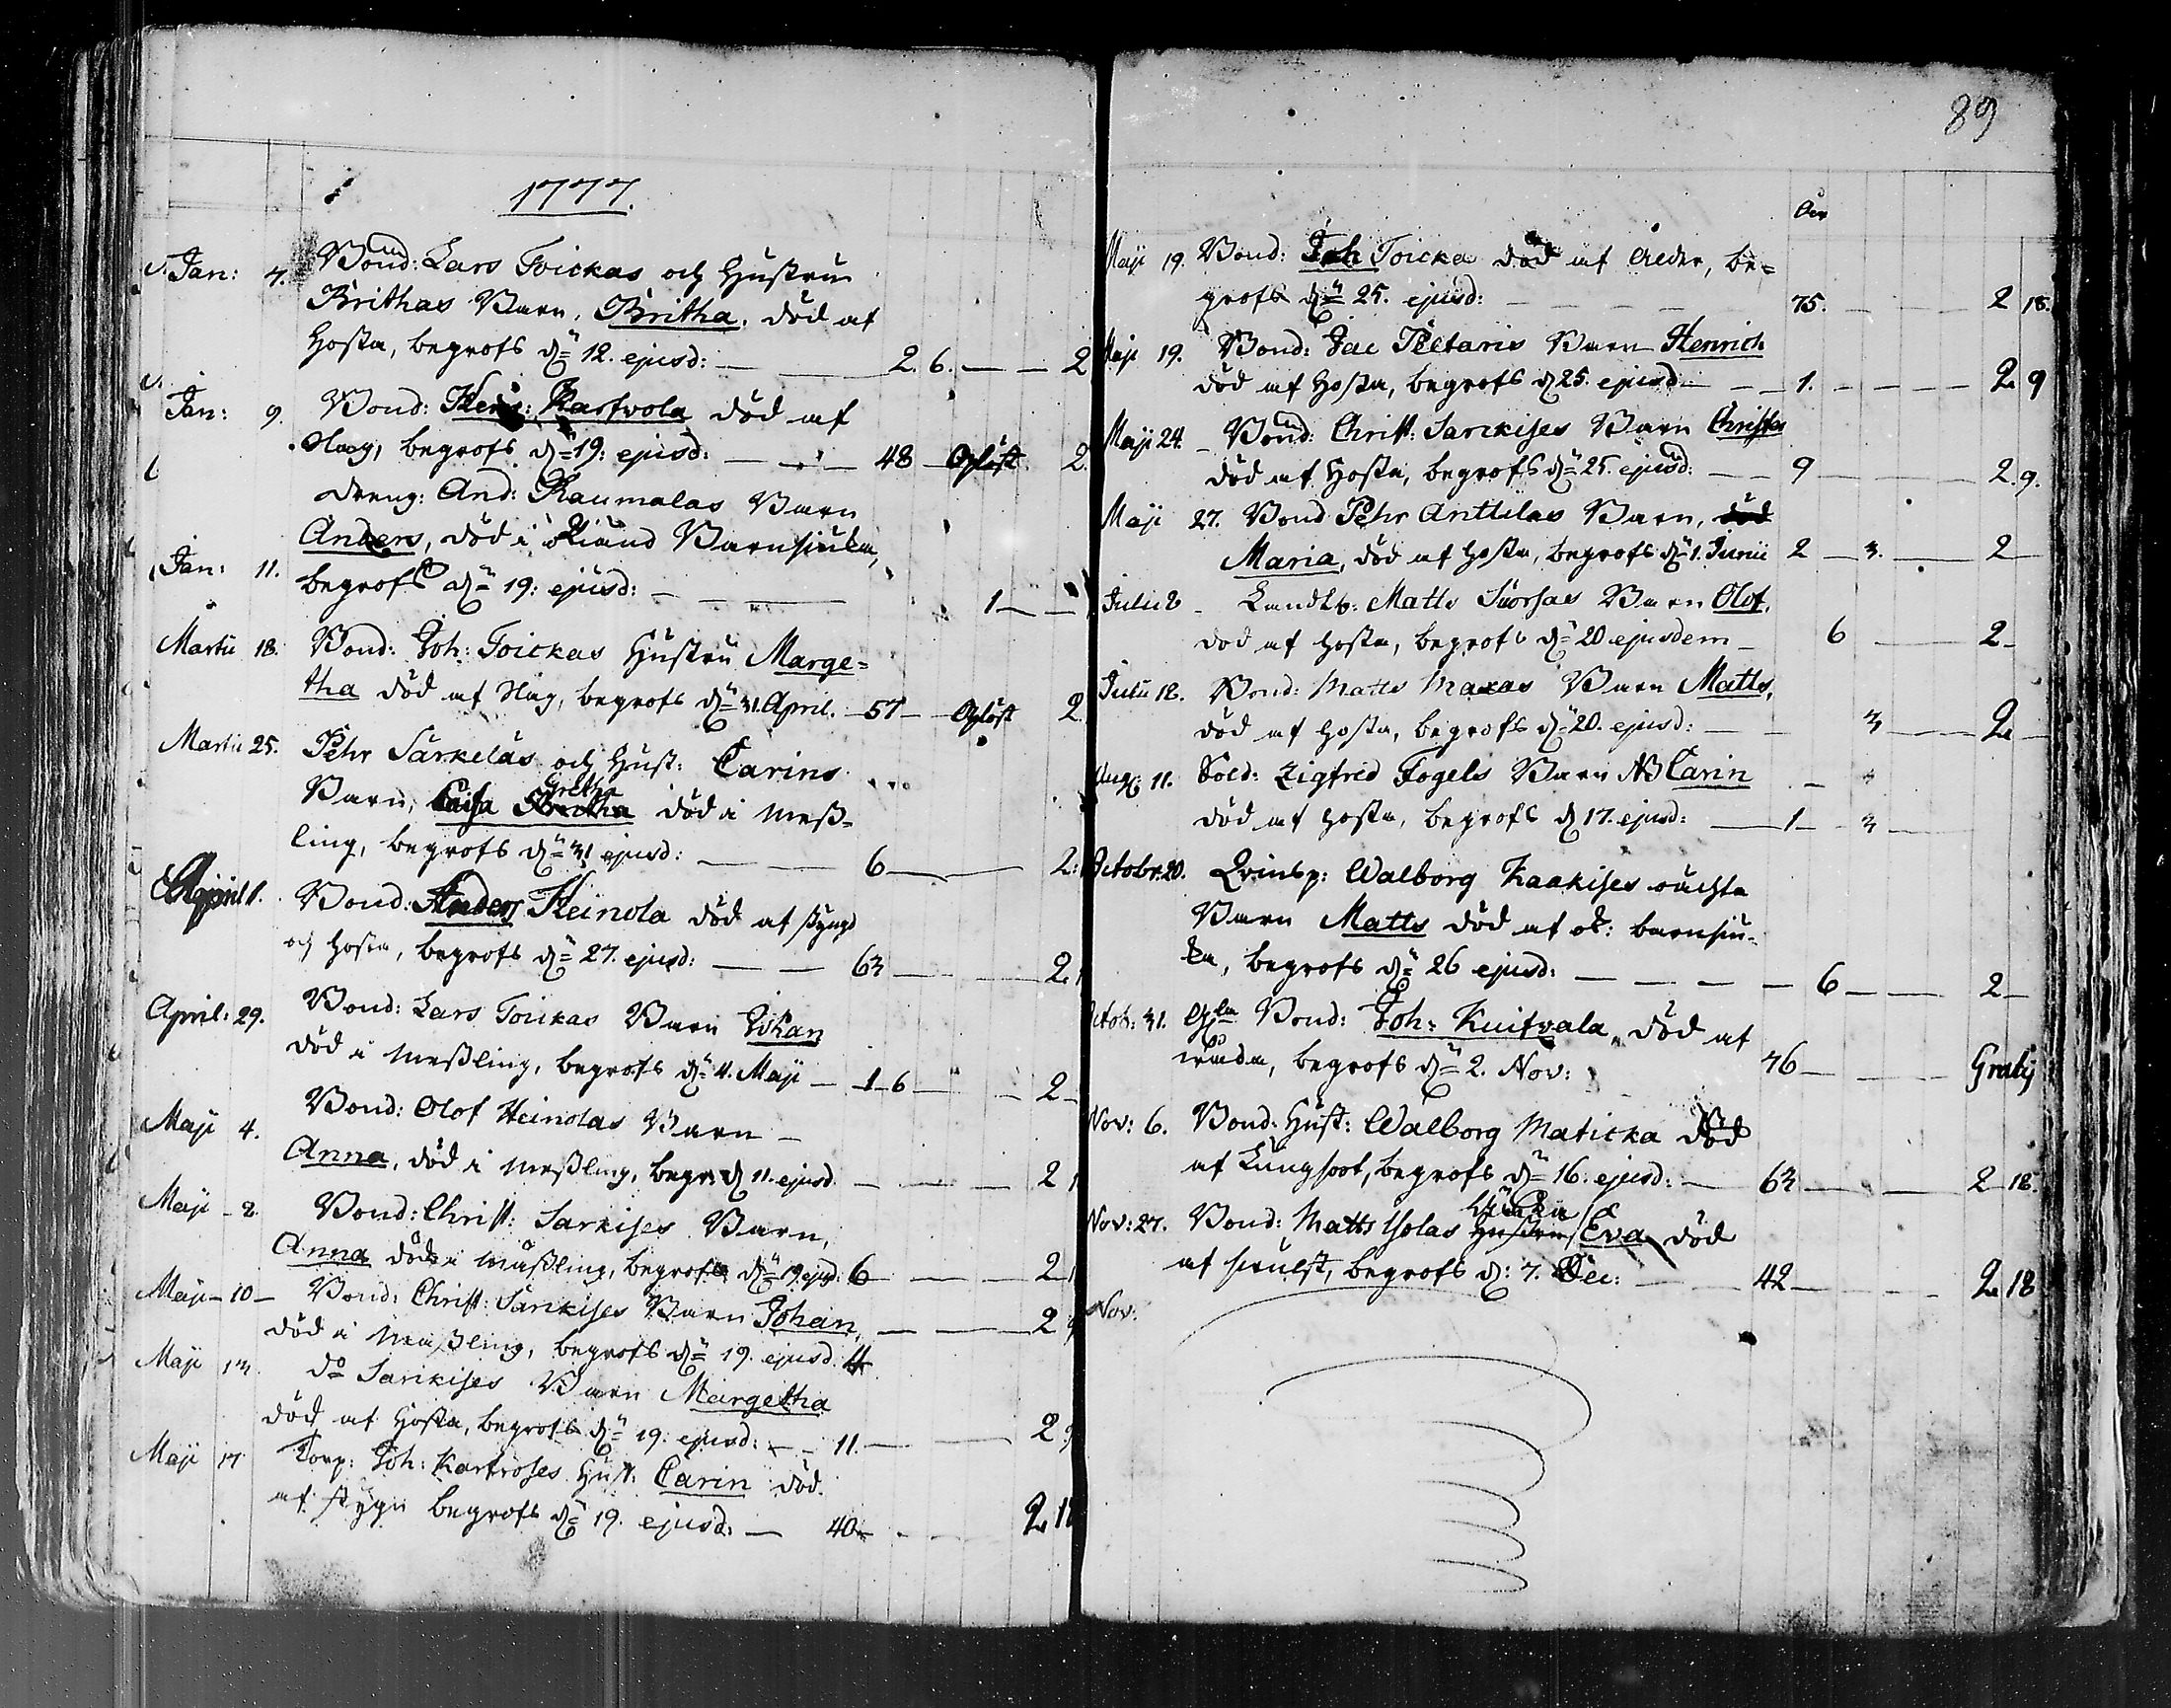 1777.
Jan: 7. Bond: Lars Toickas och Hustrun
Brithas Barn, Britha, död af
Hosta, begrofs dn 12. ejusd: 2. 6. 2
Jan: 9. Bond: Hen: Kartvola död af
Hag, begrofs dn 19: ejusd: 48 2.
Dreng: And: Raumalas Barn
Anders, död i okiänd Barnsiuka,
Jan: 11. begrofs dn 19: ejusd: 1
Martii 18. Bond: Joh: Toickas Hustru Marge=
tha död af Hag, begrofs dn 31. April. 57 2
Martii 25. Pehr Särkeläs och Hust: Carins
Gretha
Barn, Caisa död i Meß=
ling, begrofs dn 31 ejusd: 6 2:
April 1. Bond: Anders Heinola död af styng
och Hosta, begrofs dn 27. ejusd: 63 2.
April: 29. Bond: Lars Toickas Barn Johan
död i Meßling, begrofs dn 4. Maji 1 6 2
Maji 4. Bond: Olof Heinolas Barn
Anna, död i Meßling, begr: d 11. ejusd. 2
Maji 8. Bond: Christ: Sarkises Barn,
Anna död i Mäßling, begrofs dn 19. ejusd: 6 2
Maji 10 Bond: Christ: Sarkises Barn Johan, 2 9
död i Meßling, begrofs dn 19. ejusd. 4
Maji 13. do Sarkises Barn Margetha
död af Hosta, begrofs dn 19. ejusd: 11. 2 9
Maji 17 Torp: Joh: Kartvoses Hust: Carin död
af stygn begrofs dn 19. ejusd: 40 2 18
89
Maji 19. Bond: Joh Toicka död af Ålder, be=
grofs dn 25. ejusd: 75. 2 18.
Maji 19. Bond: Jac Pietaris Barn Henrich
död af Hosta, begrofs d 25. ejusd 1. 2 9
Maji 24. Bond: Christ: Sarckises Barn Christer
död af Hosta, begrofs dn 25. ejusd: 9 2. 9.
Maji 27. Bond Pehr Anttilas Barn, död
Maria, död af Hosta, begrofs dn 1. Junii 2 3. 2
Julii 8 Landtb: Matts Suorsas Barn Olof,
död af hosta, begrofs dn 20 ejusdem 6 2
Julii 12. Bond: Matts Maxas Barn Matts,
död af hosta, begrofs dn 20. ejusd: 3 2
Aug: 11. Sold: Zigfred Fogels Barn Carin
död af hosta, begrofs d 17. ejusd: 1 3
Octobr: 20. Qvinsp: Walborg Kaakises oächta
Barn Matts död af ok: barnsiu-
ka, begrofs dn 26 ejusd: 6 2
Octob: 31. Gla Bond: Joh: Kuitvala, död af
begrofs dn 2. Nov: 76 Gratis
Nov: 6. Bond: Hust: Walborg Maticka död
af Lungsoot, begrofs dn 16. ejusd: 63 2 18.
Nov: 27. Bond: Matts Hustru Eva död
af swulst, begrofs d: 7. Dec: 42 2 18
Nov: